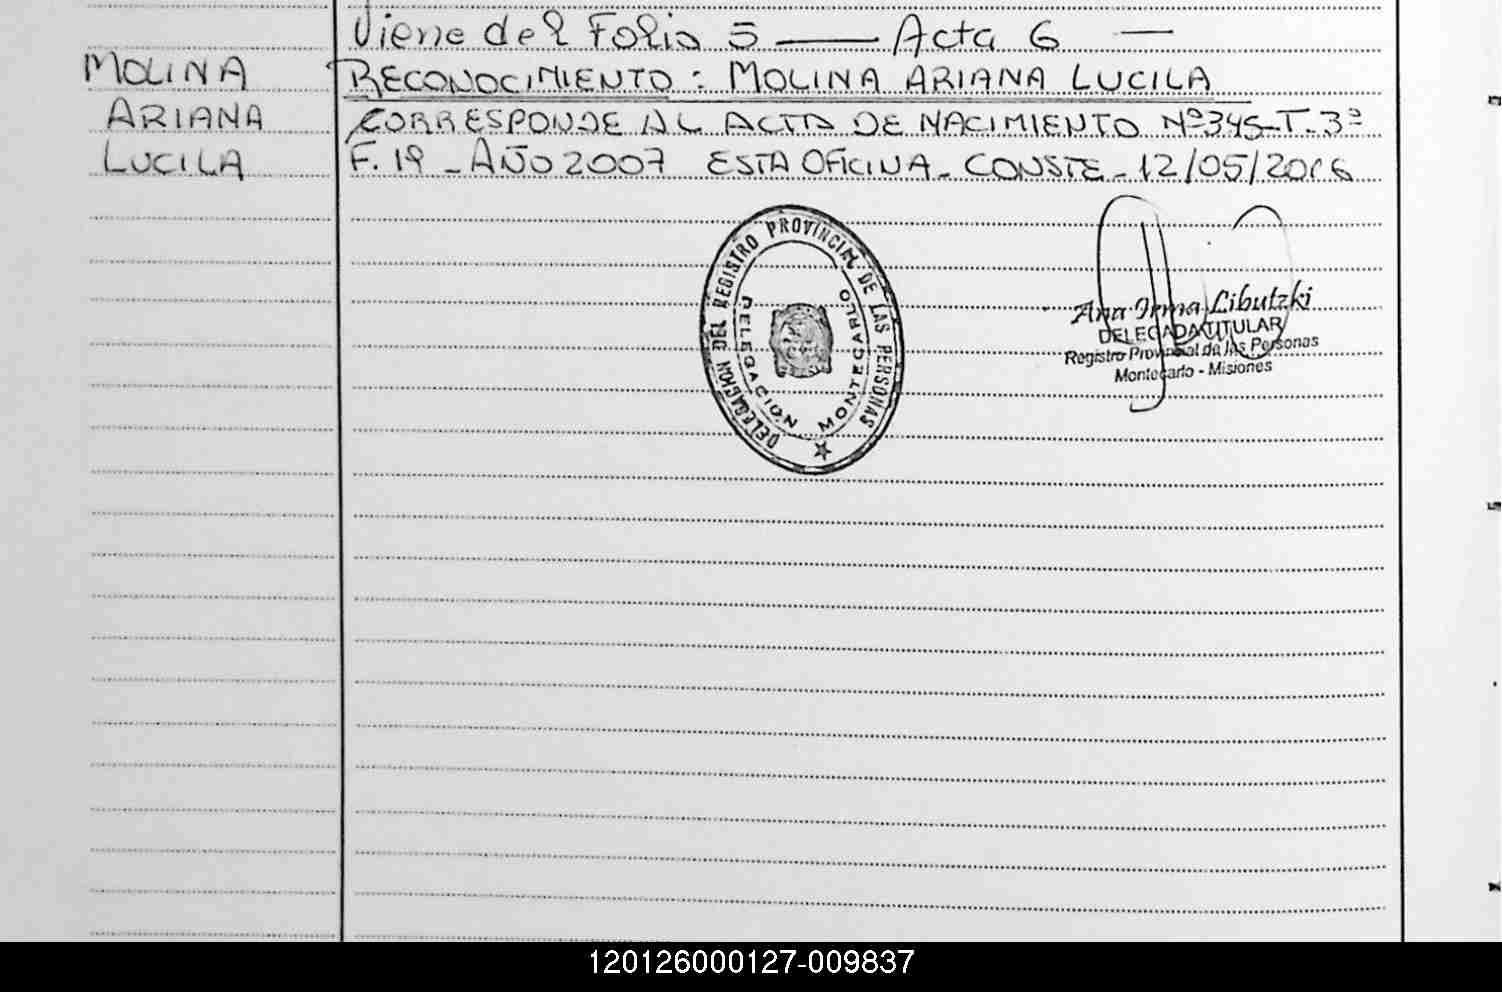 Viene del Folio 5 —— Acta 6 —
MOLINA
ARIANA
LUCILA
RECONOCIMIENTO : MOLINA ARIANA LUCILA
CORRESPONDE AL ACTA DE NACIMIENTO Nº345-T-3ª
F. 19 - AÑO 2007 ESTA OFICINA - CONSTE - 12/05/2016
DELEGACION DEL REGISTRO PROVINCIAL DE LAS PERSONAS
DELEGACION MONTECARLO
Ana Irma Libutzki
DELEGADA TITULAR
Registro Provincial de las Personas
Montecarlo - Misiones
120126000127-009837